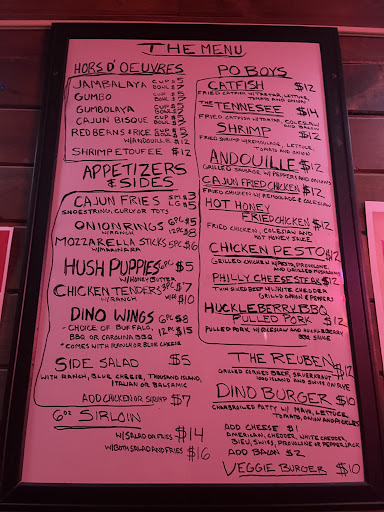 THE MENU
HORS D' OEUVRES
JAMBALAYA CUP $5 BOWL $7
GUMBO CUP $5 BOWL $7
GUMBOLAYA CUP $5 BOWL $7
CAJUN BISQUE CUP $5 BOWL $7
RED BEANS & RICE CUP $5 BOWL $
W/ANDOUILLE $12
SHRIMP ETOUFEE $12
APPETIZERS
& SIDES
CAJUN FRIES SM $3 LG $5
SHOESTRING, CURLY OR TOTS
ONION RINGS 6PC $5
W/RANCH 12PC $8
MOZZARELLA STICKS 5PC $6
W/MARINARA
HUSH PUPPIES 6PC $5
W/HONEY BUTTER
CHICKEN TENDERS 3PC $7
W/RANCH W/FF $10
DINO WINGS 6PC $8
- CHOICE OF BUFFALO, 12PC $15
BBQ OR CAROLINA BBQ
* COMES WITH RANCH OR BLUE CHEESE
SIDE SALAD $5
WITH RANCH, BLUE CHEESE, THOUSAND ISLAND,
ITALIAN OR BALSAMIC
ADD CHICKEN OR SHRIMP $7
6OZ SIRLOIN
W/SALAD OR FRIES $14
W/BOTH SALAD AND FRIES $16
PO BOYS
CATFISH $12
FRIED CATFISH W/TARTAR, LETTUCE,
TOMATO AND ONION
THE TENNESSEE $14
FRIED CATFISH W/TARTAR, COLESLAW
AND BACON
SHRIMP $12
FRIED SHRIMP W/REMOULADE, LETTUCE,
TOMATO AND ONION
ANDOUILLE $12
GRILLED SAUSAGE W/PEPPERS AND ONIONS
CAJUN FRIED CHICKEN $12
FRIED CHICKEN W/ REMOULADE & COLESLAW
HOT HONEY
FRIED CHICKEN $12
FRIED CHICKEN, COLESLAW AND
HOT HONEY SAUCE
CHICKEN PESTO $12
GRILLED CHICKEN W/PESTO, PROVOLONE,
AND GRILLED
PHILLY CHEESESTEAK $12
THIN SLICED BEEF W/WHITE CHEDDAR
GRILLED ONION & PEPPERS
HUCKLEBERRY BBQ
PULLED PORK $12
PULLED PORK W/COLESLAW AND HUCKLEBERRY
BBQ SAUCE
THE REUBEN $12
GRILLED CORNED BEEF, SAUERKRAUT
1000 ISLAND AND SWISS ON RYE
DINO BURGER $10
CHARBROILED PATTY W/ MAYO, LETTUCE,
TOMATO, ONION AND PICKLES
ADD CHEESE $1
AMERICAN, CHEDDER, WHITE CHEDDER,
BLEU, SWISS, PROVALONE OR PEPPERJACK
ADD BACON $2
VEGGIE BURGER $10